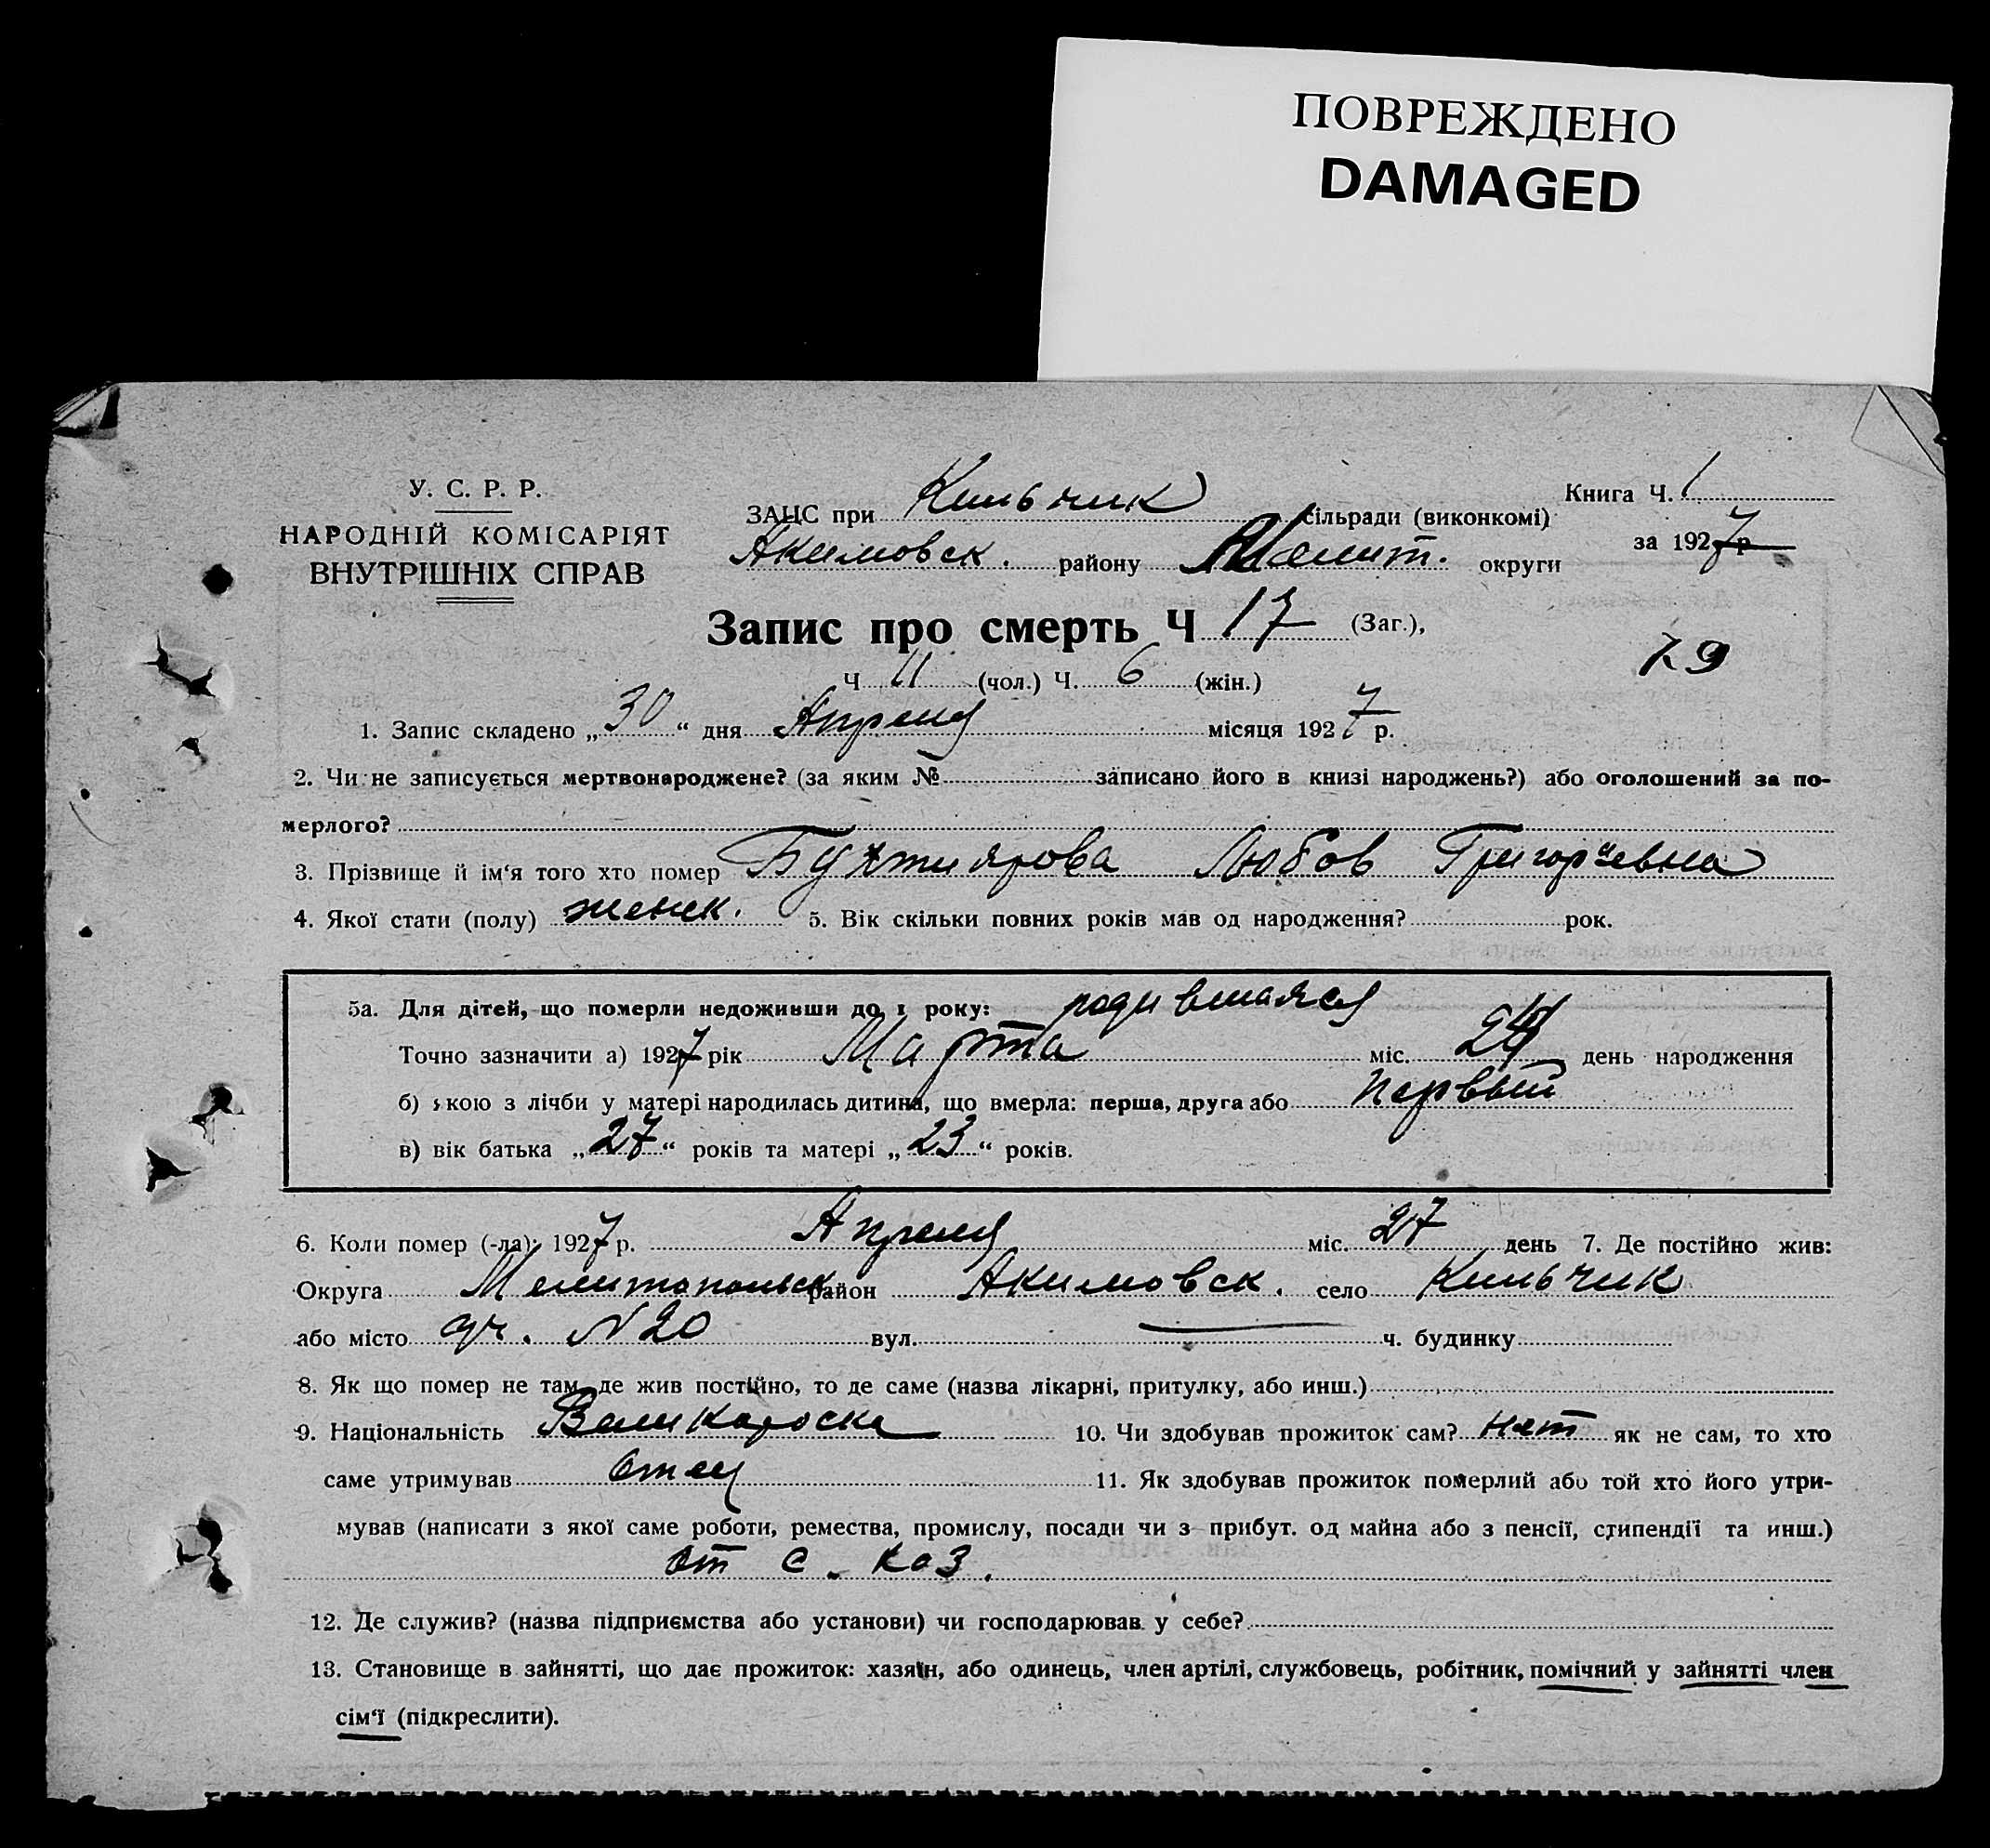 ПОВРЕЖДЕНО
DAMAGED
У. С. Р. Р.
НАРОДНІЙ КОМІСАРІЯТ
ВНУТРІШНІХ СПРАВ
ЗАЦС при Кильчик сільради (виконкомі)
Акимовск. району Мелит. округи
Книга Ч. 1
за 1927 р.
Запис про смерть Ч 17 (Заг.),
79
Ч 11 (чол.) Ч. 6 (жін.)
1. Запис складено „30“ дня Апреля місяця 1927 р.
2. Чи не записується мертвонароджене? (за яким № записано його в книзі народжень?) або оголошений за по-
мерлого?
3. Прізвище й ім‘я того хто помер Бухтиярова Любов Григорьевна
4. Якої стати (полу) женск. 5. Вік скільки повних років мав од народження? рок.
5а. Для дітей, що померли недоживши до 1 року: родившаяся
Точно зазначити а) 1927 рік Марта міс. 24 день народження
б) якою з лічби у матері народилась дитина, що вмерла: перша, друга або первый
в) вік батька „27“ років та матері „23“ років.
6. Коли помер (-ла): 1927 р. Апреля міс. 27 день 7. Де постійно жив:
Округа Мелитопольск район Акимовск. село Кильчик
або місто уч. N 20 вул. — ч. будинку
8. Як що помер не там, де жив постійно, то де саме (назва лікарні, притулку, або инш.)
9. Національність Великороска 10. Чи здобував прожиток сам? нет як не сам, то хто
саме утримував Отец 11. Як здобував прожиток померлий або той хто його утри-
мував (написати з якої саме роботи, ремества, промислу, посади чи з прибут. од майна або з пенсії, стипендії та инш.)
от с. хоз.
12. Де служив? (назва підприємства або установи) чи господарював у себе?
13. Становище в зайнятті, що дає прожиток: хазяїн, або одинець, член артілі, службовець, робітник, помічний у зайнятті член
сім‘ї (підкреслити).